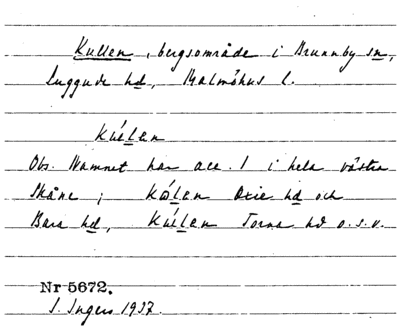 Kullen, bergsområde i Brunnby sn,
Luggude hd, Malmöhus l.
Kúlen
Obs. Namnet har acc. 1 i hela västra
Skåne; Kɷ́len Oxie hd och
Bara hd, Kúlen Torna hd o.s.v.
Nr 5672.
I. Ingers 1937.